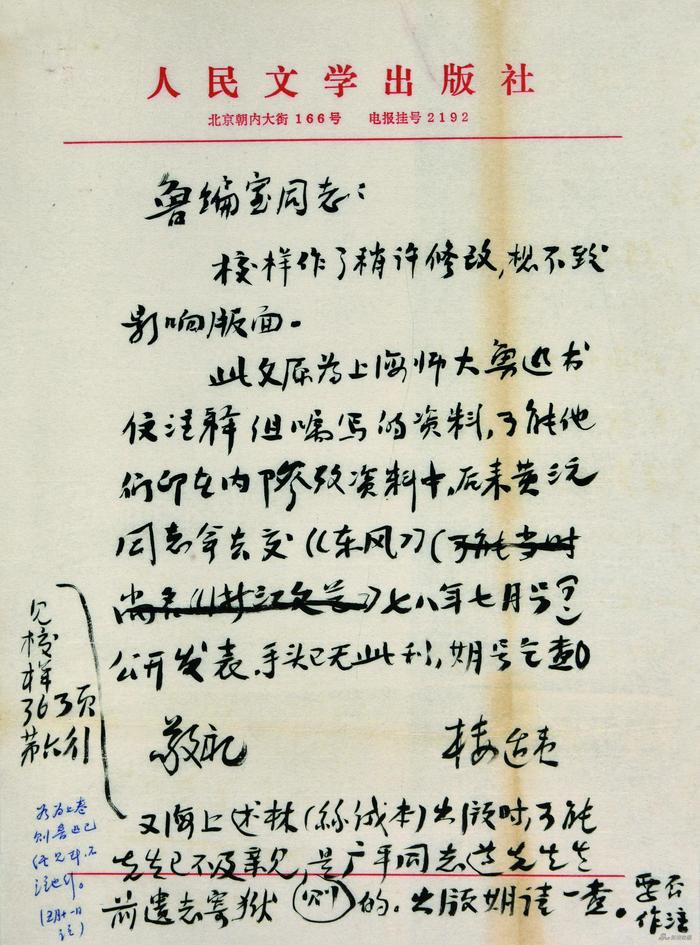 人民文学出版社
北京朝内大街166号 电报挂号2192
鲁编室同志：
校样作了稍许修改，想不致
影响版面。
此文原为上海师大鲁迅书
信注释组嘱写的资料，可能他
们印在内部参考资料中，后来黄源
同志拿去交《东风》（可能当时
尚名《浙江文艺》）七八年七月号(?)
公开发表，手头已无此刊，期号乞查。
敬礼
楼适夷
又海上述林（丝绒本）出版时，可能
先生已不及亲见，是广平同志遵先生生
前遗志寄狱（例）的，出版期请一查。
见校
样
363页
第六行
若为上卷
则鲁迅已
注也行。
要否
作注